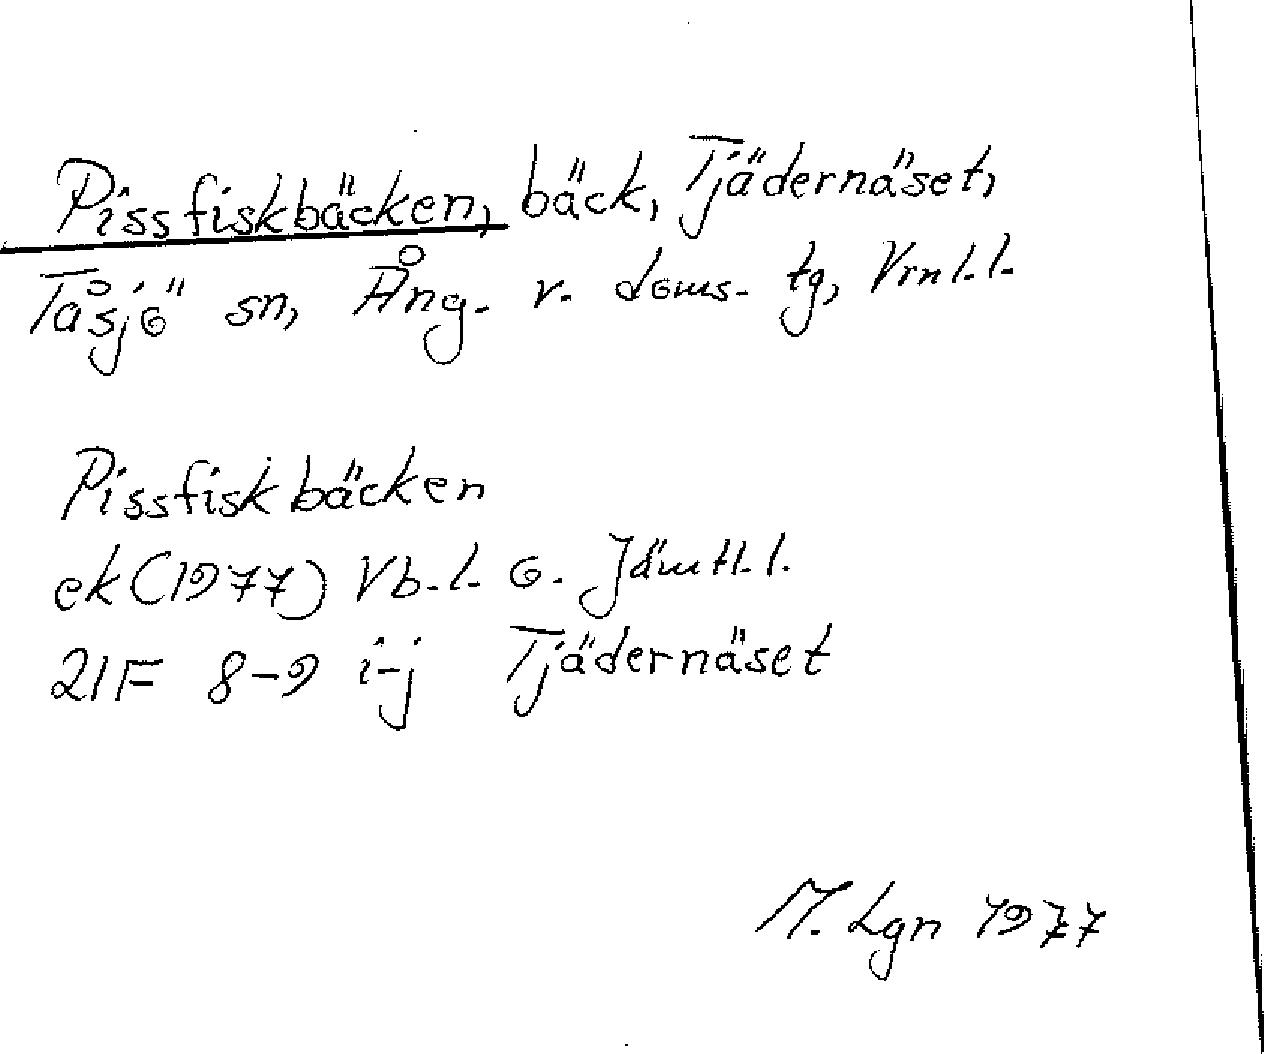 Pissfiskbäcken, bäck, Tjädernäset,
Tåsjö sn, Ång. v. doms. tg, Vrnl.l.
Pissfiskbäcken
ek (1977) Vb.l. o. Jämtl.l.
21F 8-9 i-j Tjädernäset
M. Lgn 1977